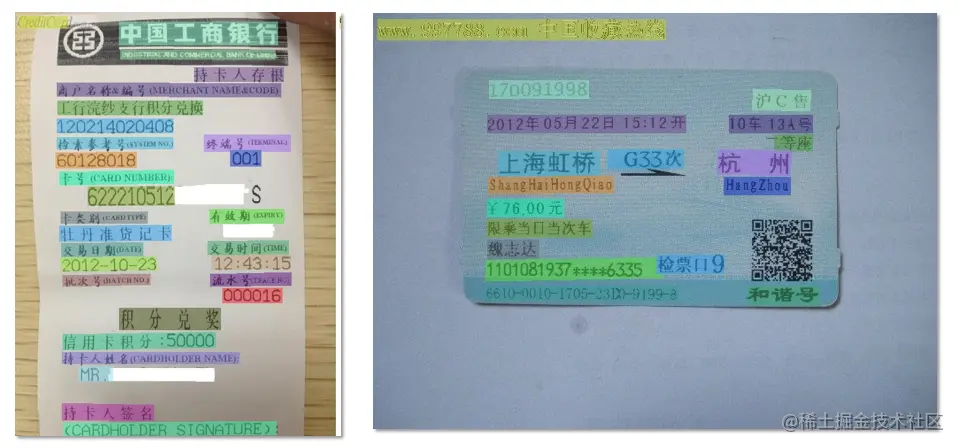 CreditCard
中国工商银行
INDUSTRIAL AND COMMERCIAL BANK OF CHINA
持卡人存根
商户名称&编号(MERCHANT NAME&CODE)
工行浣纱支行积分兑换
120214020408
检索参考号(SYSTEM NO.) 终端号(TEEMINAL)
60128018 001
卡号(CARD NUMBER)
622210512 S
卡类别(CARD TYPE) 有效期(EXPIRY)
牡丹准贷记卡
交易日期(DATE) 交易时间(TIME)
2012-10-23 12:43:15
批次号(BATCH NO.) 流水号(TRACE NO.)
000016
积分兑奖
信用卡积分:50000
持卡人姓名(CARDHOLDER NAME):
MR.
持卡人签名
(CARDHOLDER SIGNATURE):
www.997788.com 中国收藏热线
170091998
沪C售
2012年05月22日15:12开 10车13A号
二等座
上海虹桥 G33次 杭州
ShangHaiHongQiao HangZhou
￥76.00元
限乘当日当次车
魏志达
1101081937****6335 检票口9
6610-0010-1705-23D0-9199-8 和谐号
@稀土掘金技术社区